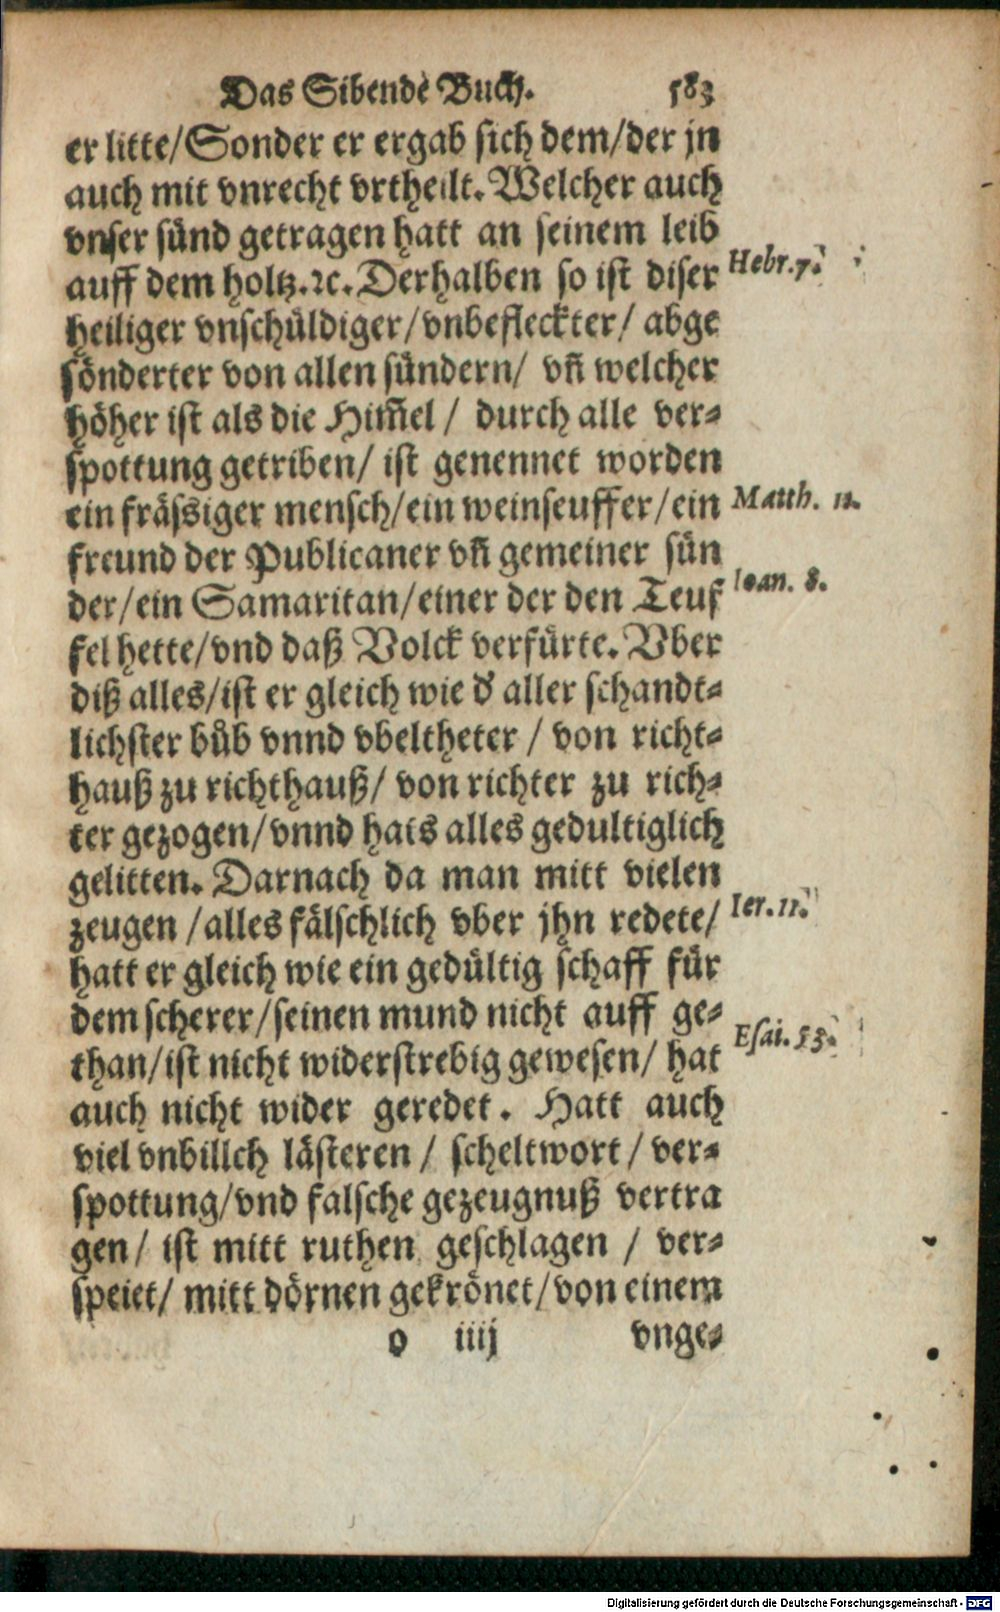 Das Sibende Buch. 583
er litte/Sonder er ergab sich dem/der jn
auch mit vnrecht vrtheilt. Welcher auch
vnser sünd getragen hatt an seinem leib
auff dem holtz.ꝛc. Derhalben so ist diser
Hebr.7.
heiliger vnschüldiger/vnbefleckter/ abge
sönderter von allen sündern/ vn̄ welcher
höher ist als die Him̄el / durch alle ver-
spottung getriben/ ist genennet worden
ein frässiger mensch/ein weinseuffer/ein
Matth. 11.
freund der Publicaner vn̄ gemeiner sün
der/ein Samaritan/einer der den Teuf
Ioan. 8.
fel hette/vnd daß Volck verfürte. Vber
diß alles/ist er gleich wie d' aller schandt-
lichster bůb vnnd vbeltheter / von richt-
hauß zu richthauß/ von richter zu rich-
ter gezogen/vnnd hats alles gedultiglich
gelitten. Darnach da man mitt vielen
zeugen /alles fälschlich vber jhn redete/
Ier.11.
hatt er gleich wie ein gedültig schaff für
dem scherer/seinen mund nicht auff ge-
than/ist nicht widerstrebig gewesen/ hat
Esai.53.
auch nicht wider geredet. Hatt auch
viel vnbillch lästeren / scheltwort/ ver-
spottung/vnd falsche gezeugnuß vertra
gen/ ist mitt ruthen geschlagen / ver-
speiet/ mitt dörnen gekrönet/von einem
o iiij vnge-
Digitalisierung gefördert durch die Deutsche Forschungsgemeinschaft - DFG